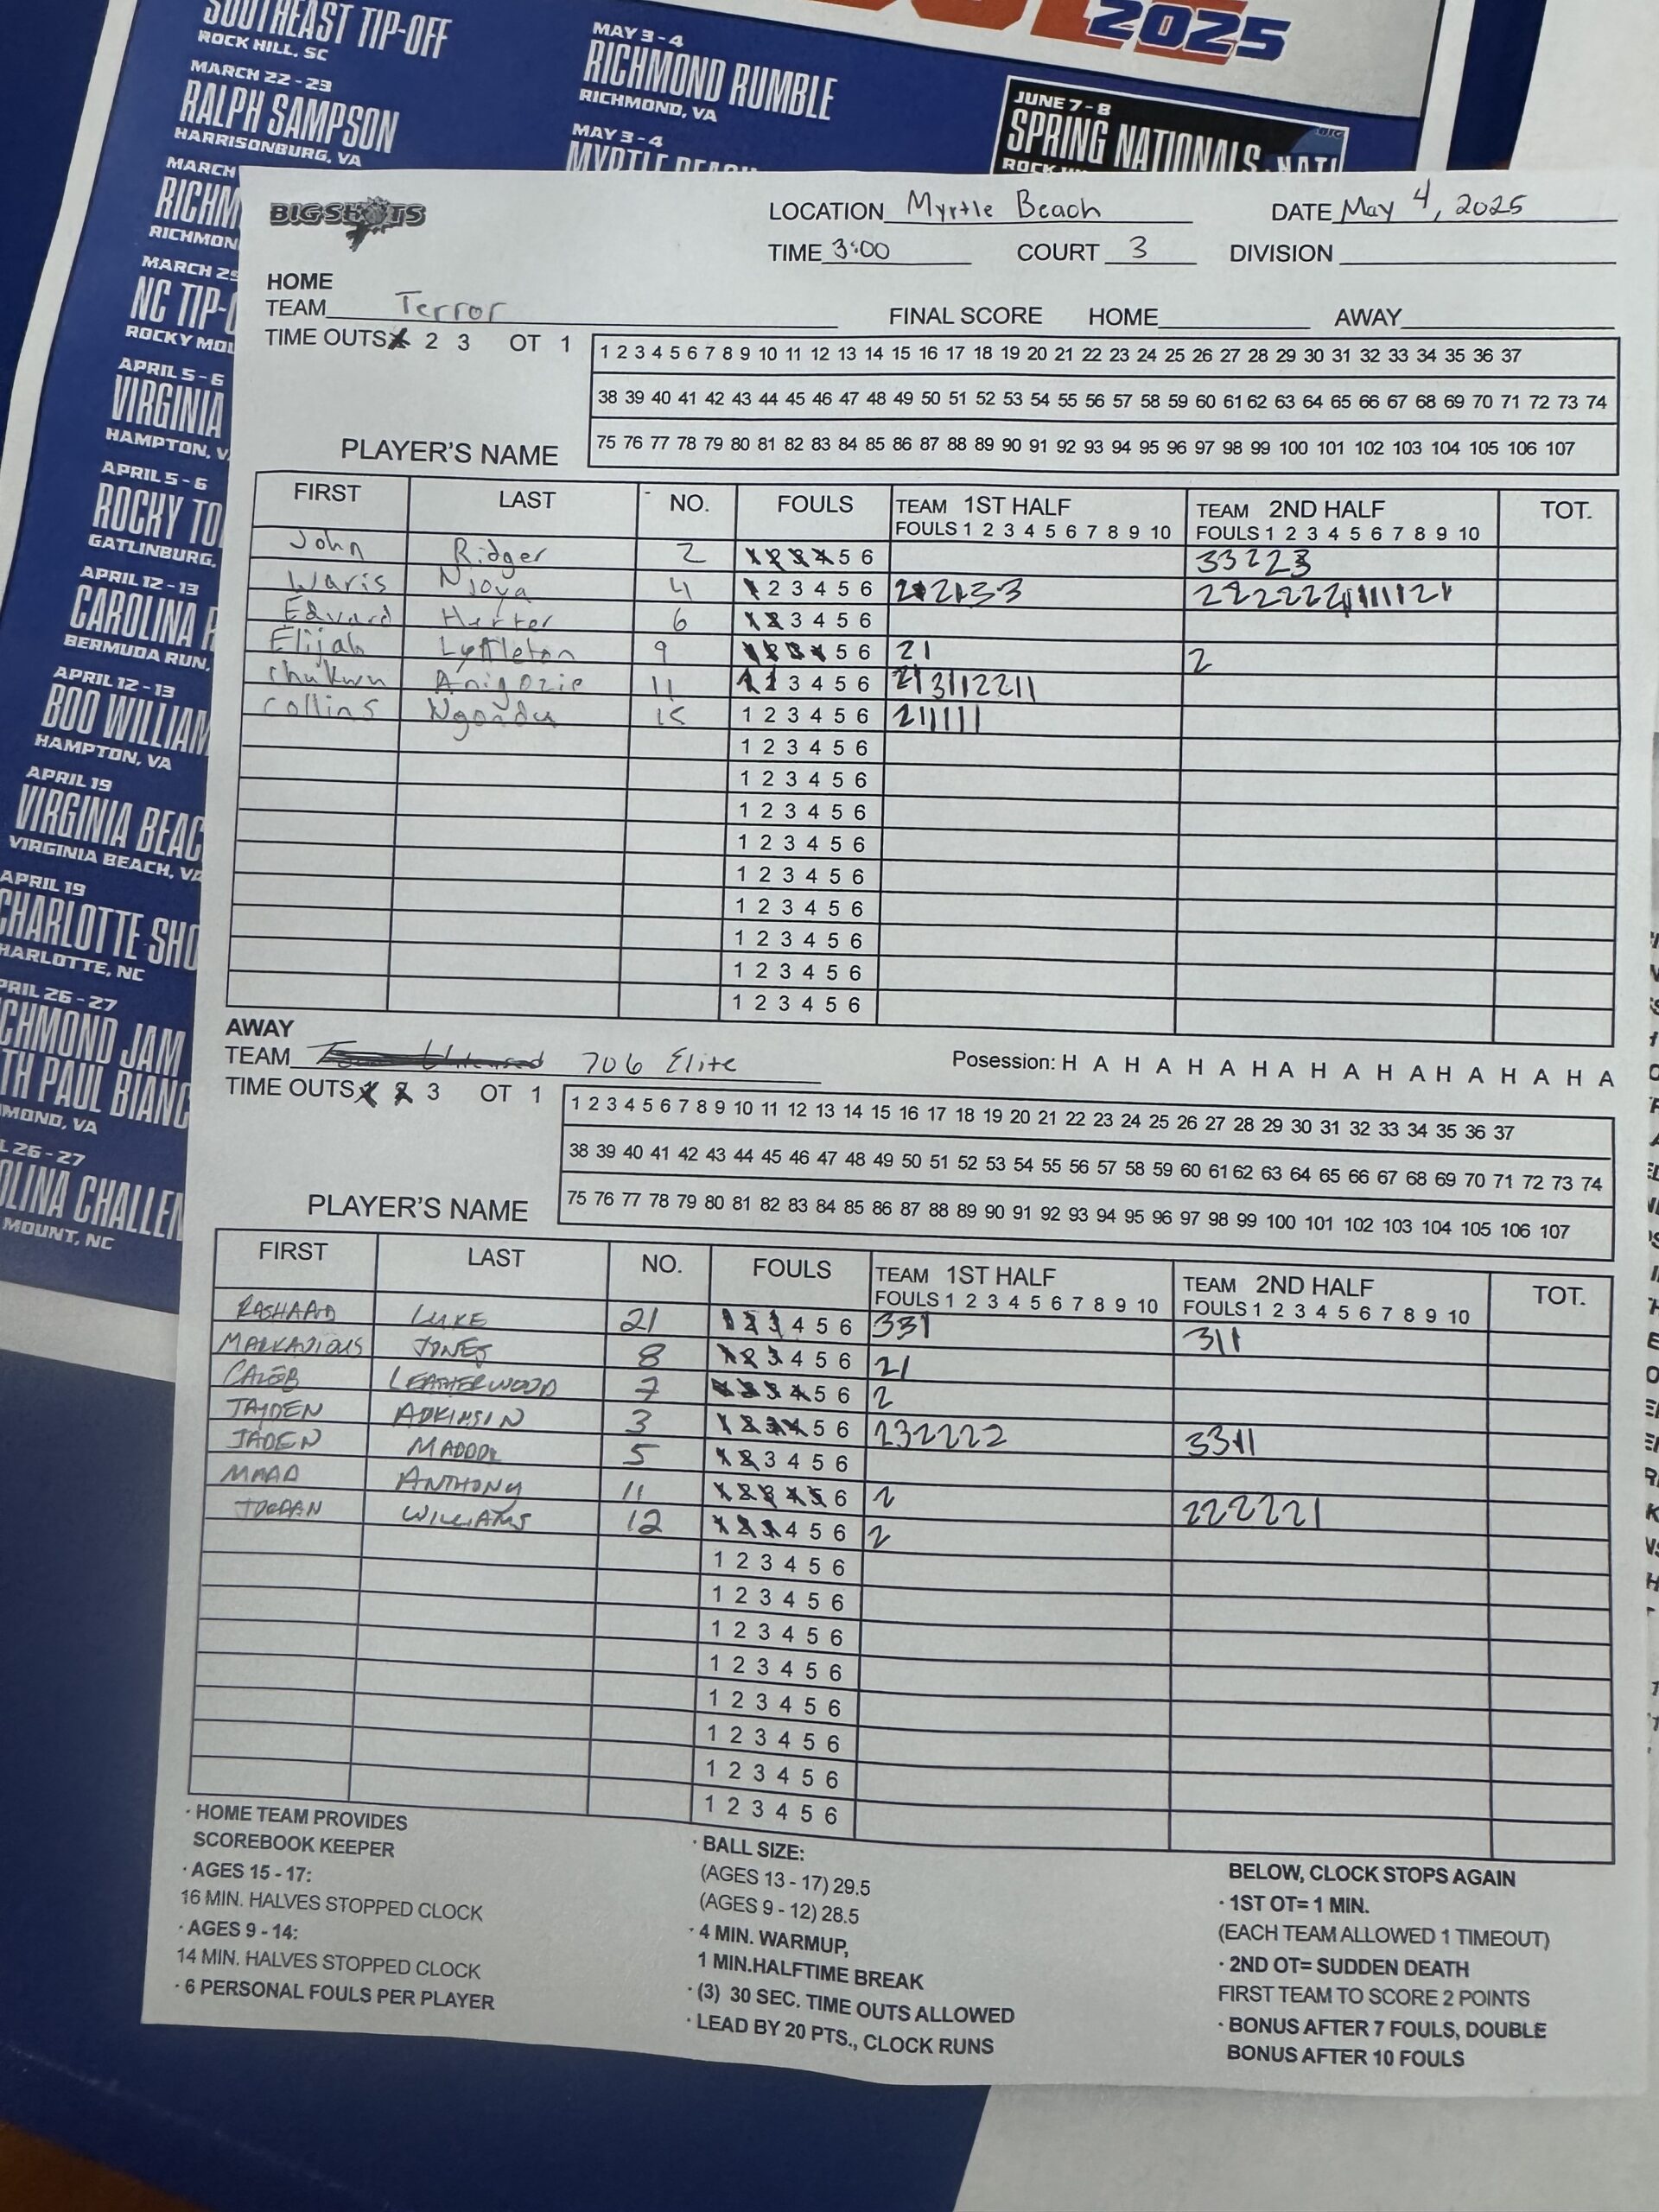 SOUTHEAST TIP-OFF
ROCK HILL, SC
MARCH 22 - 23
RALPH SAMPSON
HARRISONBURG, VA
MARCH
RICHM
RICHMON
MARCH 29
NC TIP-O
ROCKY MOU
APRIL 5 - 6
VIRGINIA
HAMPTON, V
APRIL 5 - 6
ROCKY TO
GATLINBURG,
APRIL 12 - 13
CAROLINA
BERMUDA RUN,
APRIL 12 - 13
BOO WILLIAM
HAMPTON, VA
APRIL 19
VIRGINIA BEAC
VIRGINIA BEACH, VA
APRIL 19
CHARLOTTE SHO
HARLOTTE, NC
PRIL 26 - 27
CHMOND JAM
TH PAUL BIANC
MOND, VA
L 26 - 27
OLINA CHALLEN
MOUNT, NC
MAY 3 - 4
RICHMOND RUMBLE
RICHMOND, VA
MAY 3 - 4
MYRTLE BEACH
2025
JUNE 7 - 8
SPRING NATIONALS
BIGSHOTS
LOCATION Myrtle Beach DATE May 4, 2025
TIME 3:00 COURT 3 DIVISION
HOME
TEAM Terror
FINAL SCORE HOME AWAY
TIME OUTS 1 2 3 OT 1
1 2 3 4 5 6 7 8 9 10 11 12 13 14 15 16 17 18 19 20 21 22 23 24 25 26 27 28 29 30 31 32 33 34 35 36 37
38 39 40 41 42 43 44 45 46 47 48 49 50 51 52 53 54 55 56 57 58 59 60 61 62 63 64 65 66 67 68 69 70 71 72 73 74
75 76 77 78 79 80 81 82 83 84 85 86 87 88 89 90 91 92 93 94 95 96 97 98 99 100 101 102 103 104 105 106 107
PLAYER'S NAME
FIRST LAST NO. FOULS TEAM 1ST HALF TEAM 2ND HALF TOT.
FOULS 1 2 3 4 5 6 7 8 9 10 FOULS 1 2 3 4 5 6 7 8 9 10
John Ridger 2 1 2 3 4 5 6 33223
Waris Njoya 4 1 2 3 4 5 6
Edvard 6 1 2 3 4 5 6
Elijah Lyttleton 9 1 2 3 4 5 6 21 2
Chukwu Anigozie 11 1 2 3 4 5 6 213112211
Collins Ngondu 15 1 2 3 4 5 6 211111
1 2 3 4 5 6
1 2 3 4 5 6
1 2 3 4 5 6
1 2 3 4 5 6
1 2 3 4 5 6
1 2 3 4 5 6
1 2 3 4 5 6
1 2 3 4 5 6
1 2 3 4 5 6
AWAY
TEAM 706 Elite
Posession: H A H A H A H A H A H A H A H A H A
TIME OUTS 1 2 3 OT 1
1 2 3 4 5 6 7 8 9 10 11 12 13 14 15 16 17 18 19 20 21 22 23 24 25 26 27 28 29 30 31 32 33 34 35 36 37
38 39 40 41 42 43 44 45 46 47 48 49 50 51 52 53 54 55 56 57 58 59 60 61 62 63 64 65 66 67 68 69 70 71 72 73 74
75 76 77 78 79 80 81 82 83 84 85 86 87 88 89 90 91 92 93 94 95 96 97 98 99 100 101 102 103 104 105 106 107
PLAYER'S NAME
FIRST LAST NO. FOULS TEAM 1ST HALF TEAM 2ND HALF TOT.
FOULS 1 2 3 4 5 6 7 8 9 10 FOULS 1 2 3 4 5 6 7 8 9 10
RASHAAD LUKE 21 1 2 3 4 5 6 331 311
MARKAVIOUS JONES 8 1 2 3 4 5 6 21
CALEB LEATHERWOOD 7 1 2 3 4 5 6 2
TAYDEN ADKINSIN 3 1 2 3 4 5 6 232222 3311
JADEN MADDOX 5 1 2 3 4 5 6
ANTHONY 11 1 2 3 4 5 6 2 222221
JORDAN WILLIAMS 12 1 2 3 4 5 6 2
1 2 3 4 5 6
1 2 3 4 5 6
1 2 3 4 5 6
1 2 3 4 5 6
1 2 3 4 5 6
1 2 3 4 5 6
1 2 3 4 5 6
1 2 3 4 5 6
· HOME TEAM PROVIDES
SCOREBOOK KEEPER
· AGES 15 - 17:
16 MIN. HALVES STOPPED CLOCK
· AGES 9 - 14:
14 MIN. HALVES STOPPED CLOCK
· 6 PERSONAL FOULS PER PLAYER
· BALL SIZE:
(AGES 13 - 17) 29.5
(AGES 9 - 12) 28.5
· 4 MIN. WARMUP,
1 MIN.HALFTIME BREAK
· (3) 30 SEC. TIME OUTS ALLOWED
· LEAD BY 20 PTS., CLOCK RUNS
BELOW, CLOCK STOPS AGAIN
· 1ST OT= 1 MIN.
(EACH TEAM ALLOWED 1 TIMEOUT)
· 2ND OT= SUDDEN DEATH
FIRST TEAM TO SCORE 2 POINTS
· BONUS AFTER 7 FOULS, DOUBLE
BONUS AFTER 10 FOULS